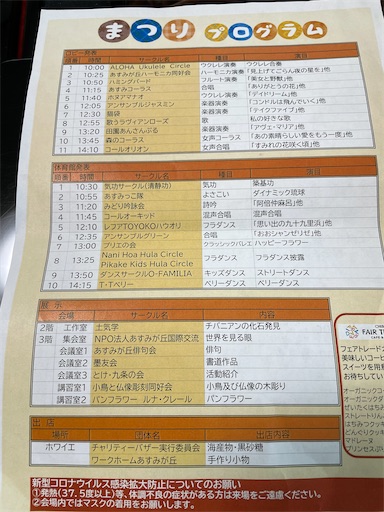 まつり プログラム
ロビー発表
順番 時間 サークル名 種目 演目
1 10:00 ALOHA Ukulele Circle ウクレレ演奏 ウクレレ合奏
2 10:25 あすみが丘ハーモニカ同好会 ハーモニカ演奏 「見上げてごらん夜の星を」他
3 10:50 ハミングバード フルート演奏 「美女と野獣」他
4 11:15 あすみコーラス 合唱 「ありがとうの花」他
5 11:40 ホヌアマナオ ウクレレ演奏 「デイドリーム」他
6 12:05 アンサンブルジャスミン 楽器演奏 「コンドルは飛んでいく」他
7 12:30 楽器演奏 「テイクファイブ」他
8 12:55 歌うラヴィアンローズ 歌 「私の好きな歌
9 13:20 田園あんさんぶる 楽器演奏 「アヴェ・マリア」他
10 13:45 森のコーラス 女声コーラス 「あの素晴らしい愛をもう一度」他
11 14:10 コールオリオン 女声合唱 「すみれの花咲く頃」他
体育館発表
順番 時間 サークル名 種目 演目
1 10:30 気功サークル(清静功) 気功 築基功
2 10:55 あすみっこ隊 よさこい ダイナミック琉球
3 11:20 みどり吟詠会 詩吟 「阿倍仲麻呂」他
4 11:45 コールオーキッド 混声合唱 混声合唱
5 12:10 レフアTOYOKOハウオリ フラダンス 「思い出の九十九里浜」他
6 12:35 アンサンブルグリーン 合唱 「おおシャンゼリゼ」他
7 13:00 プリエの会 クラッシックバレエ ハッピーフラワー
8 13:25 Nani Hoa Hula Circle
Pikake Kids Hula Circle フラダンス フラダンス披露
9 13:50 ダンスサークルO-FAMILIA キッズダンス ストリートダンス
10 14:15 T・Tベリー ベリーダンス ベリーダンス
展 示
場所 サークル名 内容
2階 工作室 土気学 チバニアンの化石発見
3階 集会室 NPO法人あすみが丘国際交流 世界を見る眼
会議室1 あすみが丘俳句会 俳句
会議室2 墨友会 書道作品
会議室3 とけ・九条の会 活動紹介
講習室1 小鳥と仏像彫刻同好会 小鳥及び仏像の木彫り
講習室2 パンフラワー ルナ・クレール パンフラワー
出 店
場所 団体名 出店内容
ホワイエ チャリティーバザー実行委員会 海産物・黒砂糖
ワークホームあすみが丘 手作り小物
新型コロナウイルス感染拡大防止についてのお願い
①発熱(37.5度以上)等、体調不良の症状がある方は来場をご遠慮ください。
②会場内ではマスクの着用をお願いします。
FAIR T
CAFE &
フェアトレード
美味しいコーヒー
スイーツを用意
お待ちしてい